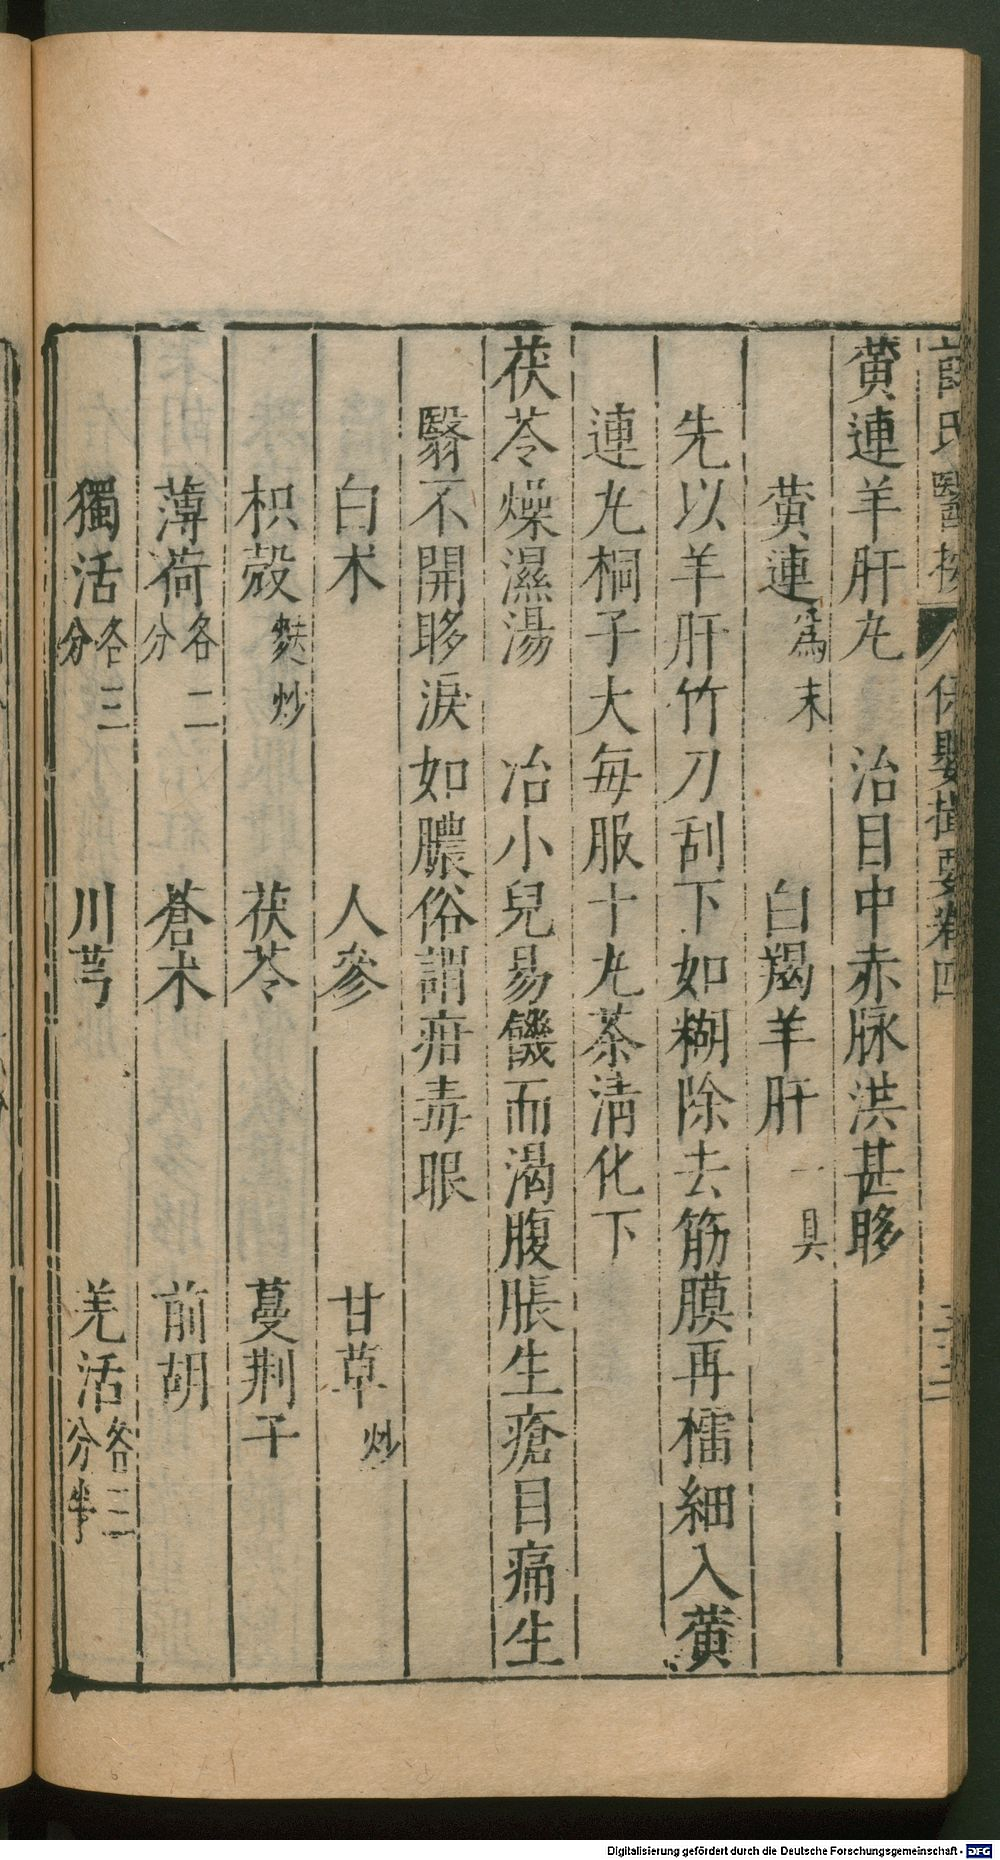 薛氏醫按 保嬰撮要卷四
黄連羊肝丸 治目中赤脉洪甚眵
黄連爲末 白羯羊肝一具
先以羊肝竹刀刮下如糊除去筋膜再擂細入黄
連丸桐子大每服十丸茶清化下
茯苓燥濕湯 冶小兒易饑而渴腹脹生瘡目痛生
翳不開眵淚如膿俗謂疳毒眼
白术 人參 甘草炒
枳殼麩炒 茯苓 蔓荆子
薄荷各二分 蒼术 前胡
獨活各三分 川芎 羌活各三分半
Digitalisierung gefördert durch die Deutsche Forschungsgemeinschaft - DFG